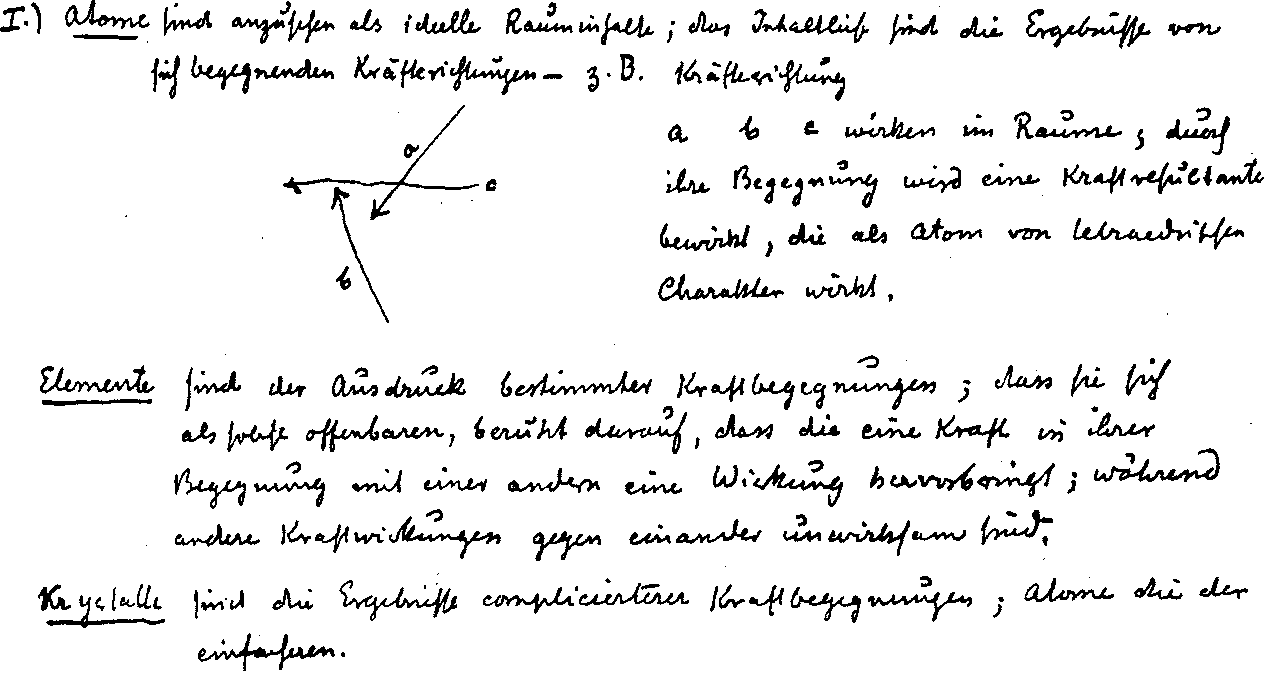 I.) Atome sind anzusehen als ideelle Rauminhalte; das Inhaltliche sind die Ergebnisse von
sich begegnenden Kräfterichtungen – z. B. Kräfterichtung
a b c wirken im Raume; durch
ihre Begegnung wird eine Kraftresultante
bewirkt, die als Atom von tetraedrischen
Charakter wirkt.
a
c
b
Elemente sind der Ausdruck bestimmter Kraftbegegnungen; dass sie sich
als solche offenbaren, beruht darauf, dass die eine Kraft in ihrer
Begegnung mit einer andern eine Wirkung hervorbringt; während
andere Kraftwirkungen gegen einander unwirksam sind.
Krystalle sind die Ergebnisse complicierterer Kraftbegegnungen; Atome die der
einfacheren.